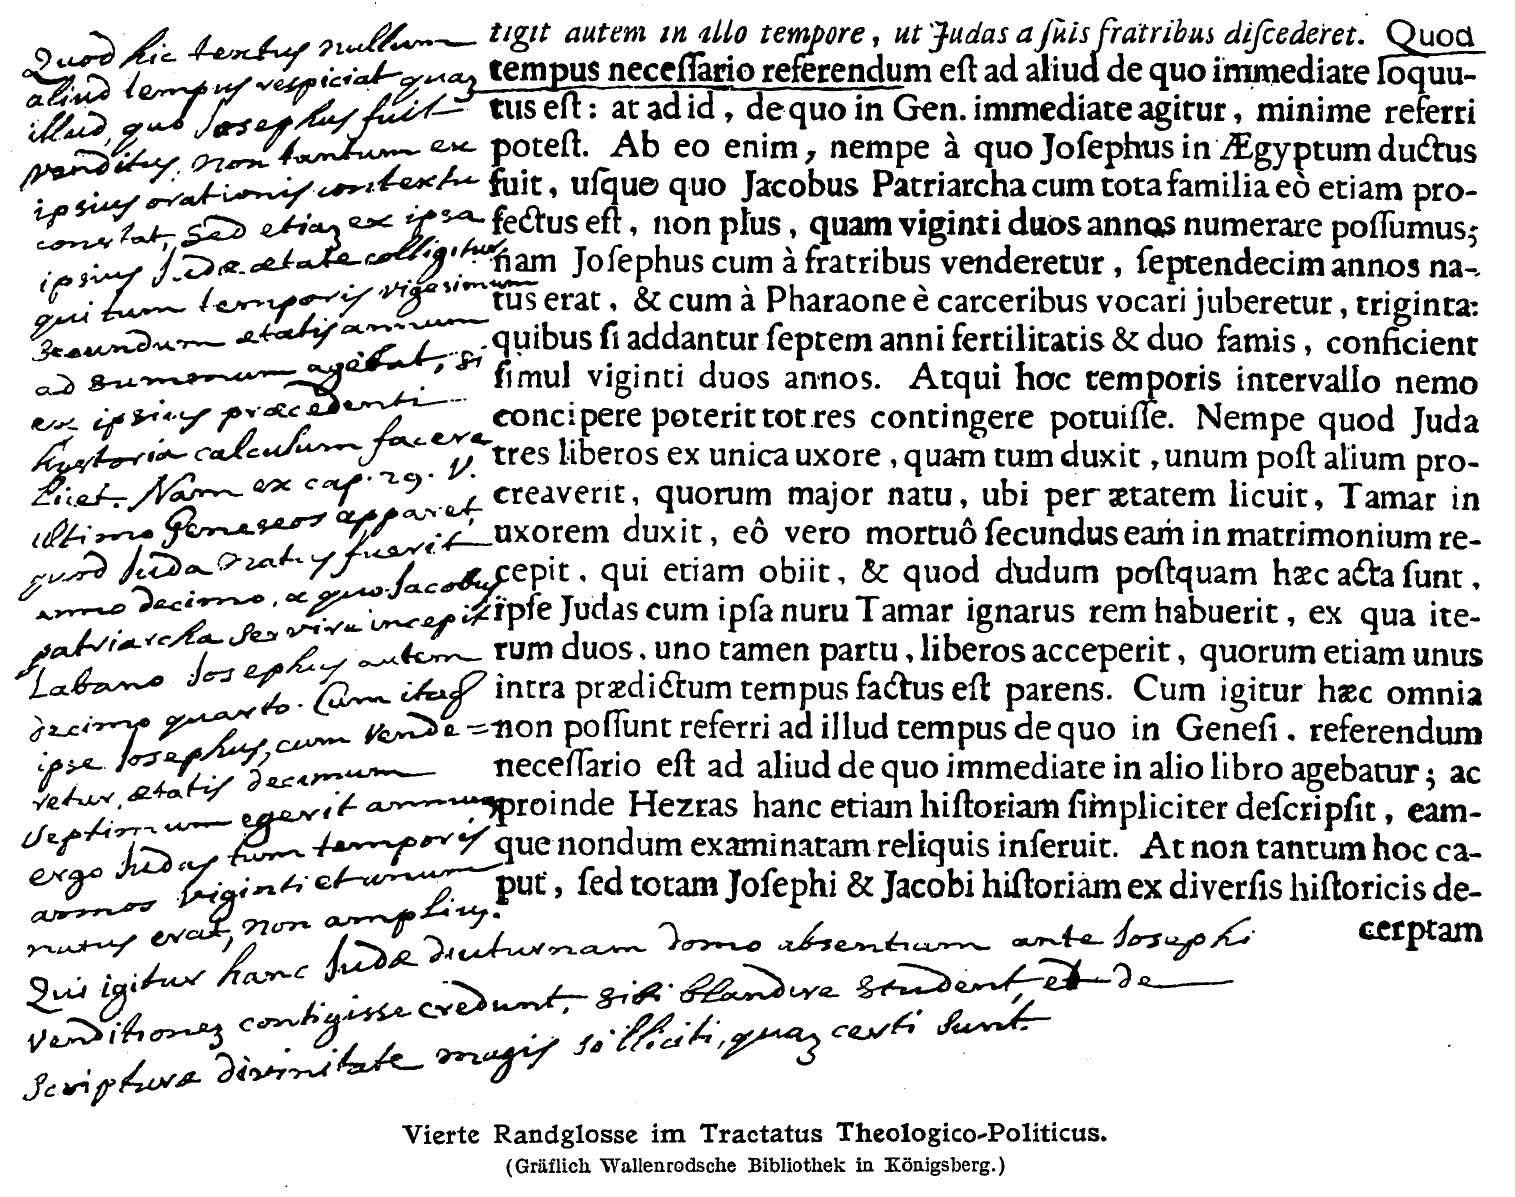 tigit autem in illo tempore, ut Judas a ſuis fratribus diſcederet. Quod
tempus neceſſario referendum eſt ad aliud de quo immediate loquu-
tus eſt: at ad id, de quo in Gen. immediate agitur, minime referri
poteſt. Ab eo enim, nempe à quo Joſephus in Ægyptum ductus
fuit, uſque quo Jacobus Patriarcha cum tota familia eò etiam pro-
fectus eſt, non plus, quam viginti duos annos numerare poſſumus;
nam Joſephus cum à fratribus venderetur, ſeptendecim annos na-
tus erat, & cum à Pharaone è carceribus vocari juberetur, triginta:
quibus ſi addantur ſeptem anni fertilitatis & duo famis, conficient
ſimul viginti duos annos. Atqui hoc temporis intervallo nemo
concipere poterit tot res contingere potuiſſe. Nempe quod Juda
tres liberos ex unica uxore, quam tum duxit, unum poſt alium pro-
creaverit, quorum major natu, ubi per ætatem licuit, Tamar in
uxorem duxit, eô vero mortuô ſecundus eam in matrimonium re-
cepit, qui etiam obiit, & quod dudum poſtquam hæc acta ſunt,
ipſe Judas cum ipſa nuru Tamar ignarus rem habuerit, ex qua ite-
rum duos, uno tamen partu, liberos acceperit, quorum etiam unus
intra prædictum tempus factus eſt parens. Cum igitur hæc omnia
non poſſunt referri ad illud tempus de quo in Geneſi, referendum
neceſſario eſt ad aliud de quo immediate in alio libro agebatur; ac
proinde Hezras hanc etiam hiſtoriam ſimpliciter deſcripſit, eam-
que nondum examinatam reliquis inſeruit. At non tantum hoc ca-
put, ſed totam Joſephi & Jacobi hiſtoriam ex diverſis hiſtoricis de-
cerptam
Quod hic textus nullum
aliud tempus respiciat quam
illud, quo Josephus fuit
venditus, non tantum ex
ipsius orationis contextu
constat, sed etiam ex ipsa
ipsius Judæ ætate colligitur
qui tum temporis vigesimum
secundum ætatis annum
ad summum agebat, si
ex ipsius præcedenti
hystoria calculum facere
licet. Nam ex cap. 29. V.
ultimo Geneseos apparet,
quod Juda natus fuerit
anno decimo, a quo Jacobus
patriarcha servire incepit
Labano Josephus autem
decimo quarto. Cum itaq
ipse Josephus, cum vende=
retur, ætatis decimum
septimum egerit annum,
ergo Judas tum temporis
annos viginti et unum
natus erat, non amplius.
Qui igitur hanc Judæ diuturnam domo absentiam ante Josephi
venditionem contigisse credunt, sibi blandire student, et de
Scripturæ divinitate magis solliciti, quam certi sunt.
Vierte Randglosse im Tractatus Theologico-Politicus.
(Gräflich Wallenrodsche Bibliothek in Königsberg.)